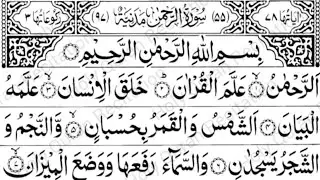 اٰیَاتُهَا ٧٨ (٥٥) سُوْرَةُ الرَّحْمٰنِ مَدَنِیَّةٌ (٩٧) رُكُوْعَاتُهَا ٣
بِسْمِ اللهِ الرَّحْمٰنِ الرَّحِیْمِ
اَلرَّحْمٰنُ ۝١ عَلَّمَ الْقُرْاٰنَ ۝٢ خَلَقَ الْاِنْسَانَ ۝٣ عَلَّمَهُ
الْبَیَانَ ۝٤ اَلشَّمْسُ وَ الْقَمَرُ بِحُسْبَانٍ ۝٥ وَّ النَّجْمُ وَ
الشَّجَرُ یَسْجُدٰنِ ۝٦ وَ السَّمَآءَ رَفَعَهَا وَ وَضَعَ الْمِیْزَانَ ۝٧